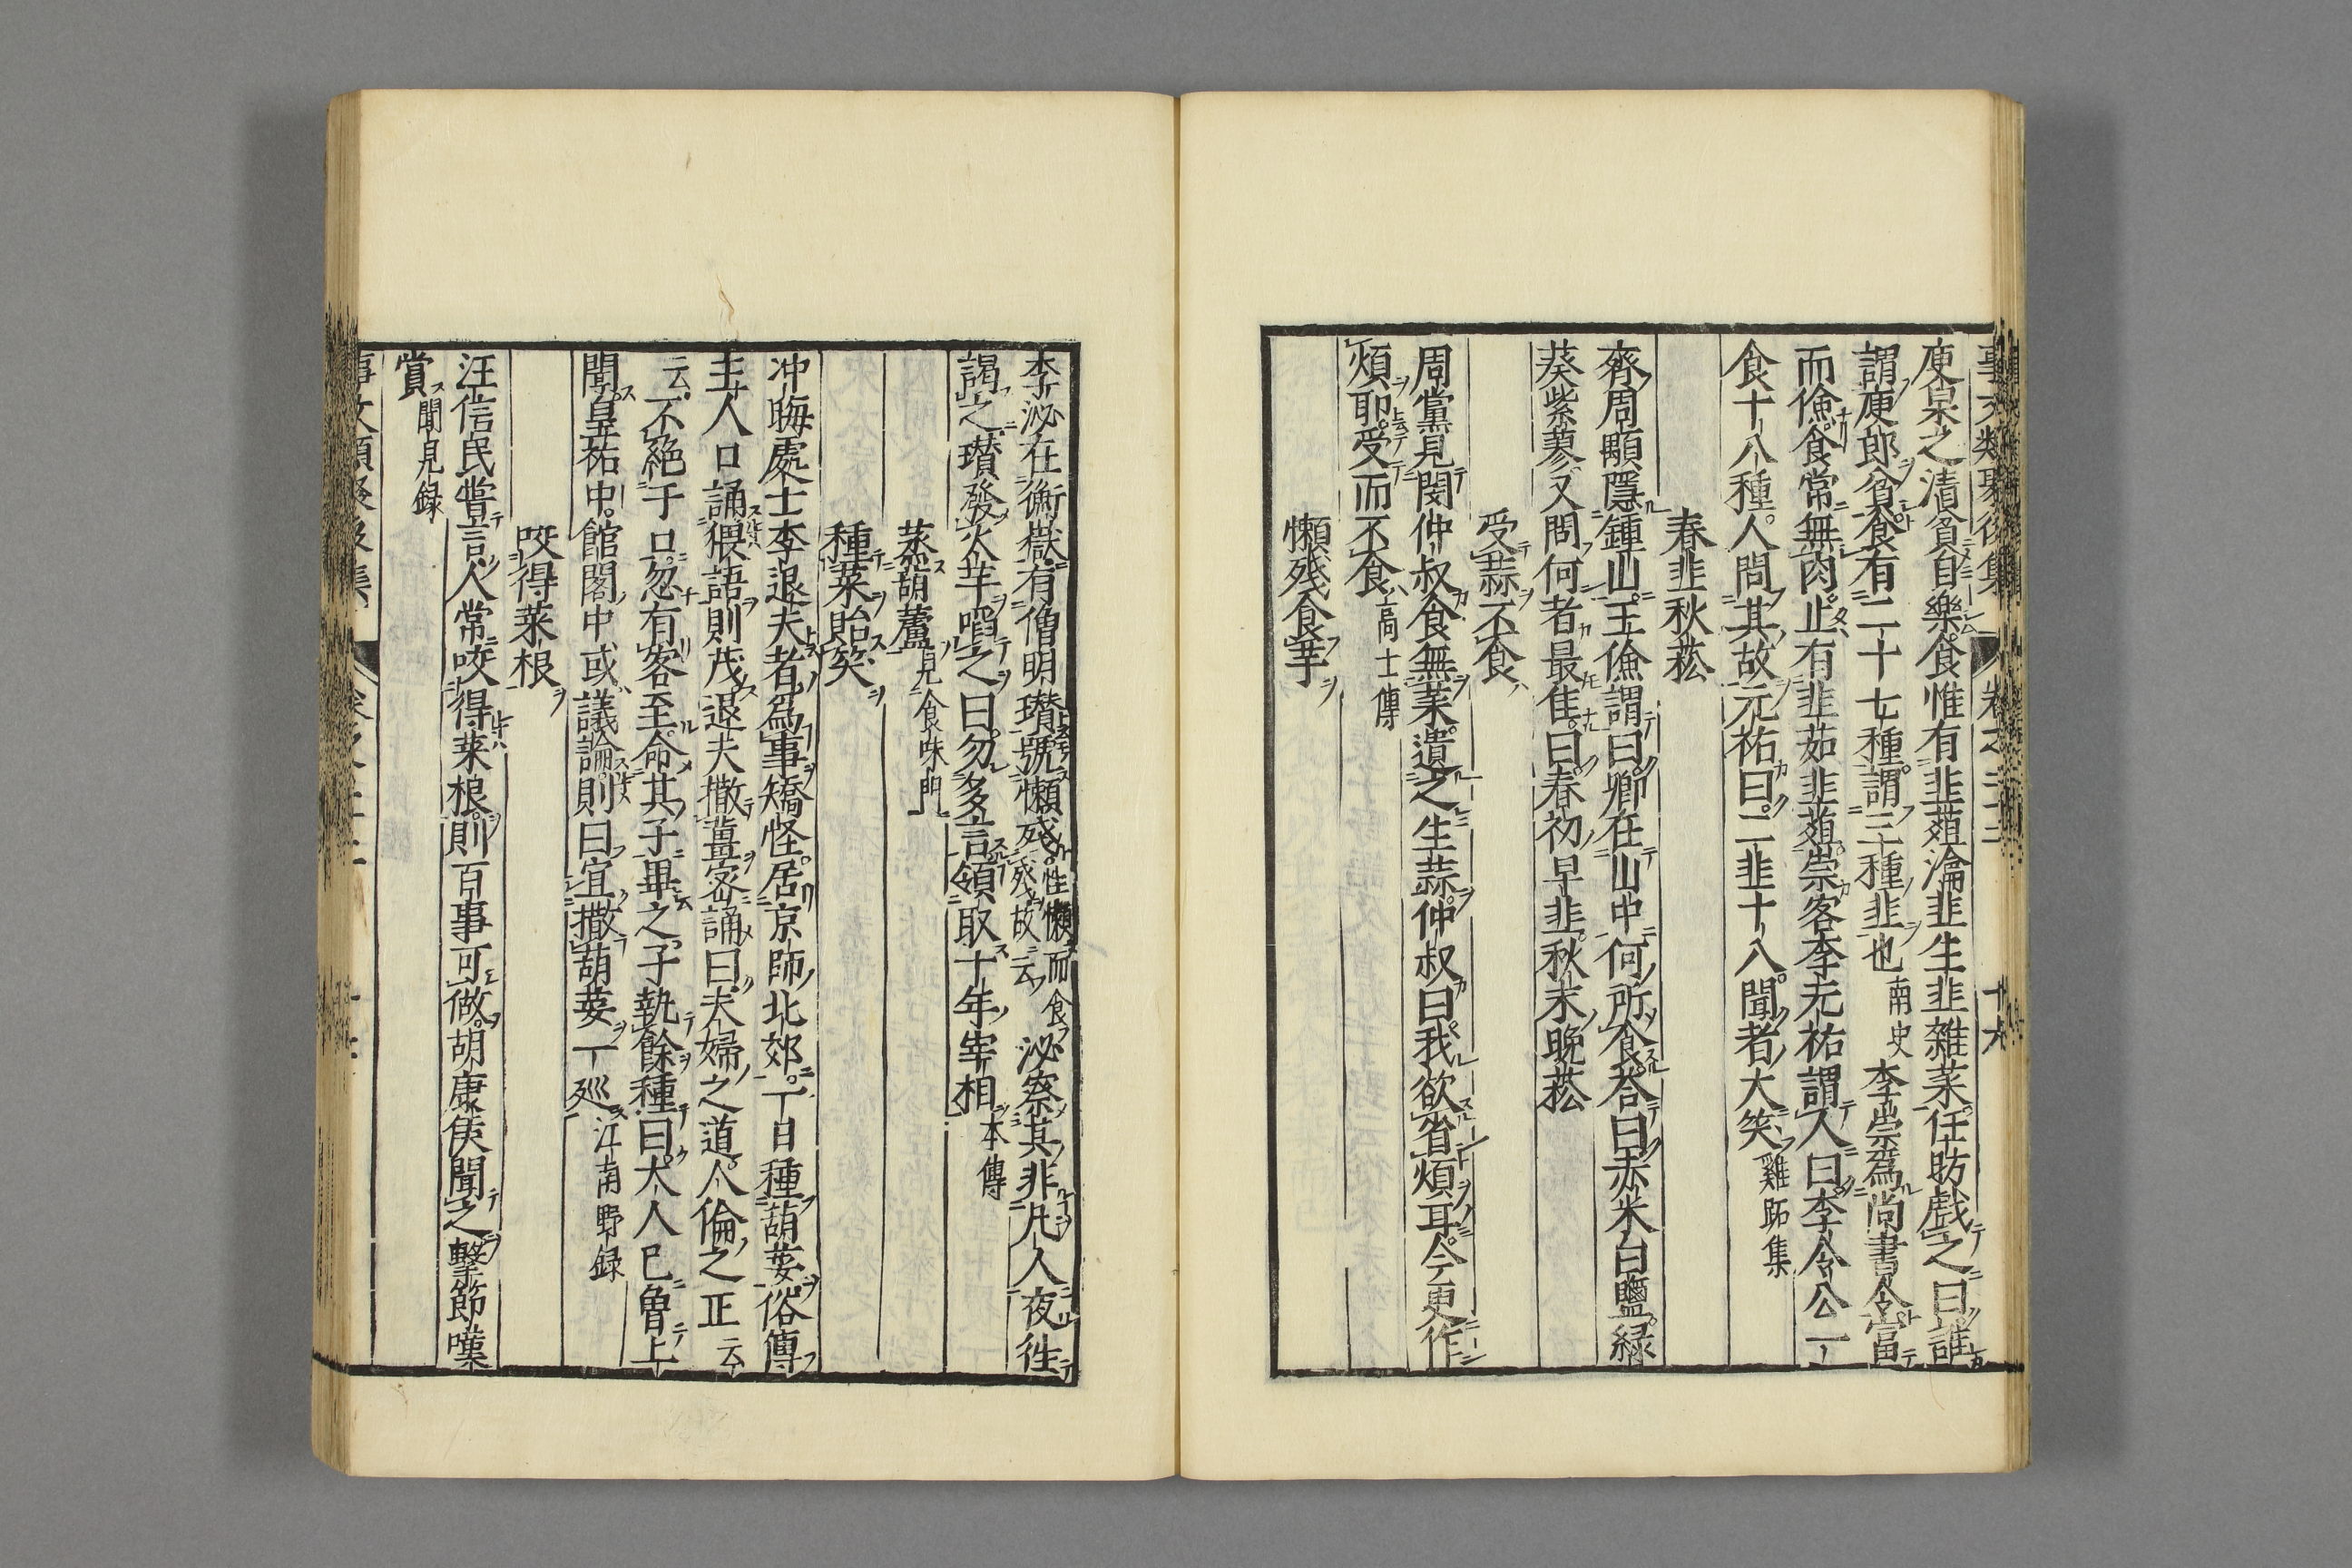 事文類聚後集 卷之二十二 十六
庾杲之清貧自樂食惟有韭葅瀹韭生韭雜菜任昉戲之曰誰
謂庾郎貧食有二十七種謂三種韭也南史李崇為尚書令富
而儉食常無肉止有韭茹韭葅崇客李元祐謂人曰李令公一
食十八種人問其故元祐曰二韭十八聞者大笑雞跖集
春韭秋菘
齊周顒隱鍾山王儉謂曰卿在山中何所食荅曰赤米白鹽緑
葵紫蓼又問何者最佳曰春初早韭秋末晚菘
受蒜不食
周黨見閔仲叔食無菜遺之生蒜仲叔曰我欲省煩耳今更作
煩耶受而不食高士傳
懶殘食芋
李泌在衡嶽有僧明瓚號懶殘性懶而食殘故云泌察其非凡人夜徃
謁之瓚發火芋啗之曰勿多言領取十年宰相本傳
蒸葫蘆見食味門
種菜貽笑
冲晦處士李退夫者為事矯怪居京師北郊一日種葫荽俗傳
主人口誦猥語則茂退夫撒薑密誦曰夫婦之道人倫之正云
云不絕于口忽有客至命其子畢之子執餘種曰大人已魯上
聞皇祐中館閣中或議論則曰宜撒葫荽一廵江南野録
咬得菜根
汪信民嘗言人常咬得菜根則百事可做胡康侯聞之擊節嘆
賞聞見録